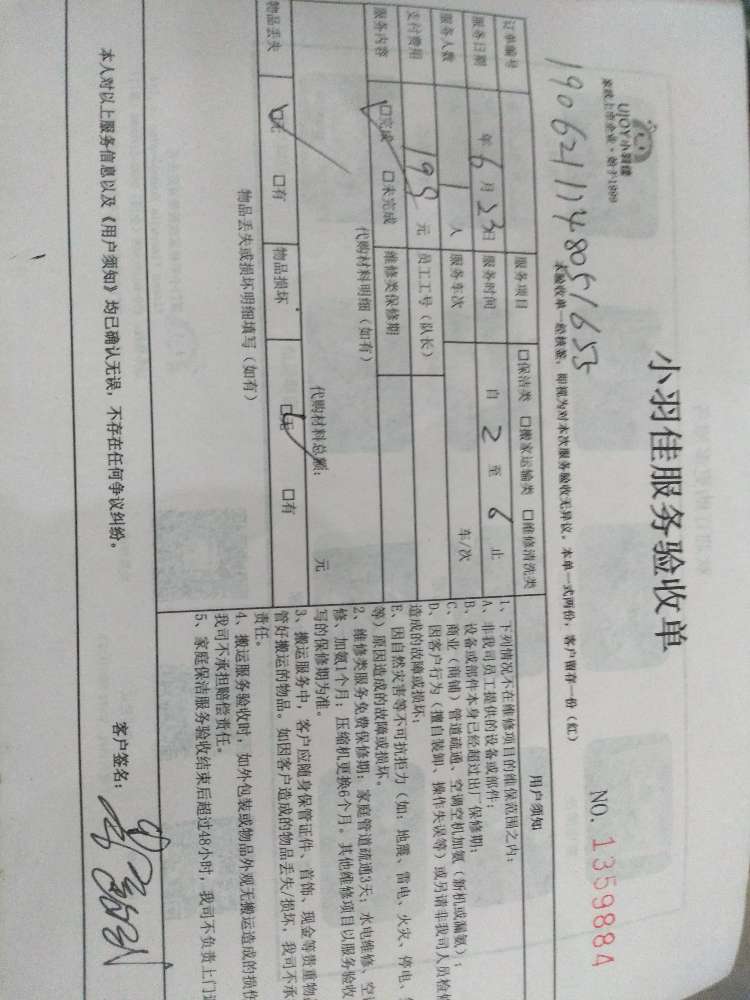 UJOY小羽佳
家政上市企业·始于1999
小羽佳服务验收单
NO. 1359884
本验收单一经核签,即视为对本次服务验收无异议。本单一式两份,客户留存一份(红)
订单编号
1906211148051653
服务项目 口保洁类 口搬家运输类 口维修清洗类
服务日期 年 6 月 23 日 服务时间 自 2 至 6 止
服务人数 1 人 服务车次 车/次
支付费用 195 元 员工工号(队长)
服务内容 口完成 口未完成 维修类保修期
代购材料明细(如有)
代购材料总额: 元
物品丢失 口无 口有 物品损坏 口无 口有
物品丢失或损坏明细填写(如有)
用户须知
1、下列情况不在维修项目的维保范围之内:
A、非我司员工提供的设备或部件;
B、设备或部件本身已经超过出厂保修期;
C、商业(商铺)管道疏通、空调空机加氨(新机或漏氨);
D、因客户行为(擅自装卸、操作失误等)或另请非我司人员检修
造成的故障或损坏;
E、因自然灾害等不可抗拒力(如:地震、雷电、火灾、停电、
等)原因造成的故障或损坏。
2、维修类服务免费保修期:家庭管道疏通3天;水电维修、空调
修、加氨1个月;压缩机更换6个月。其他维修项目以服务验收
写的保修期为准。
3、搬运服务中,客户应随身保管证件、首饰、现金等贵重物
管好搬运的物品。如因客户造成的物品丢失/损坏,我司不承
责任。
4、搬运服务验收时,如外包装或物品外观无搬运造成的损伤
我司不承担赔偿责任。
5、家庭保洁服务验收结束后超过48小时,我司不负责上门
本人对以上服务信息以及《用户须知》均已确认无误,不存在任何争议纠纷。
客户签名: